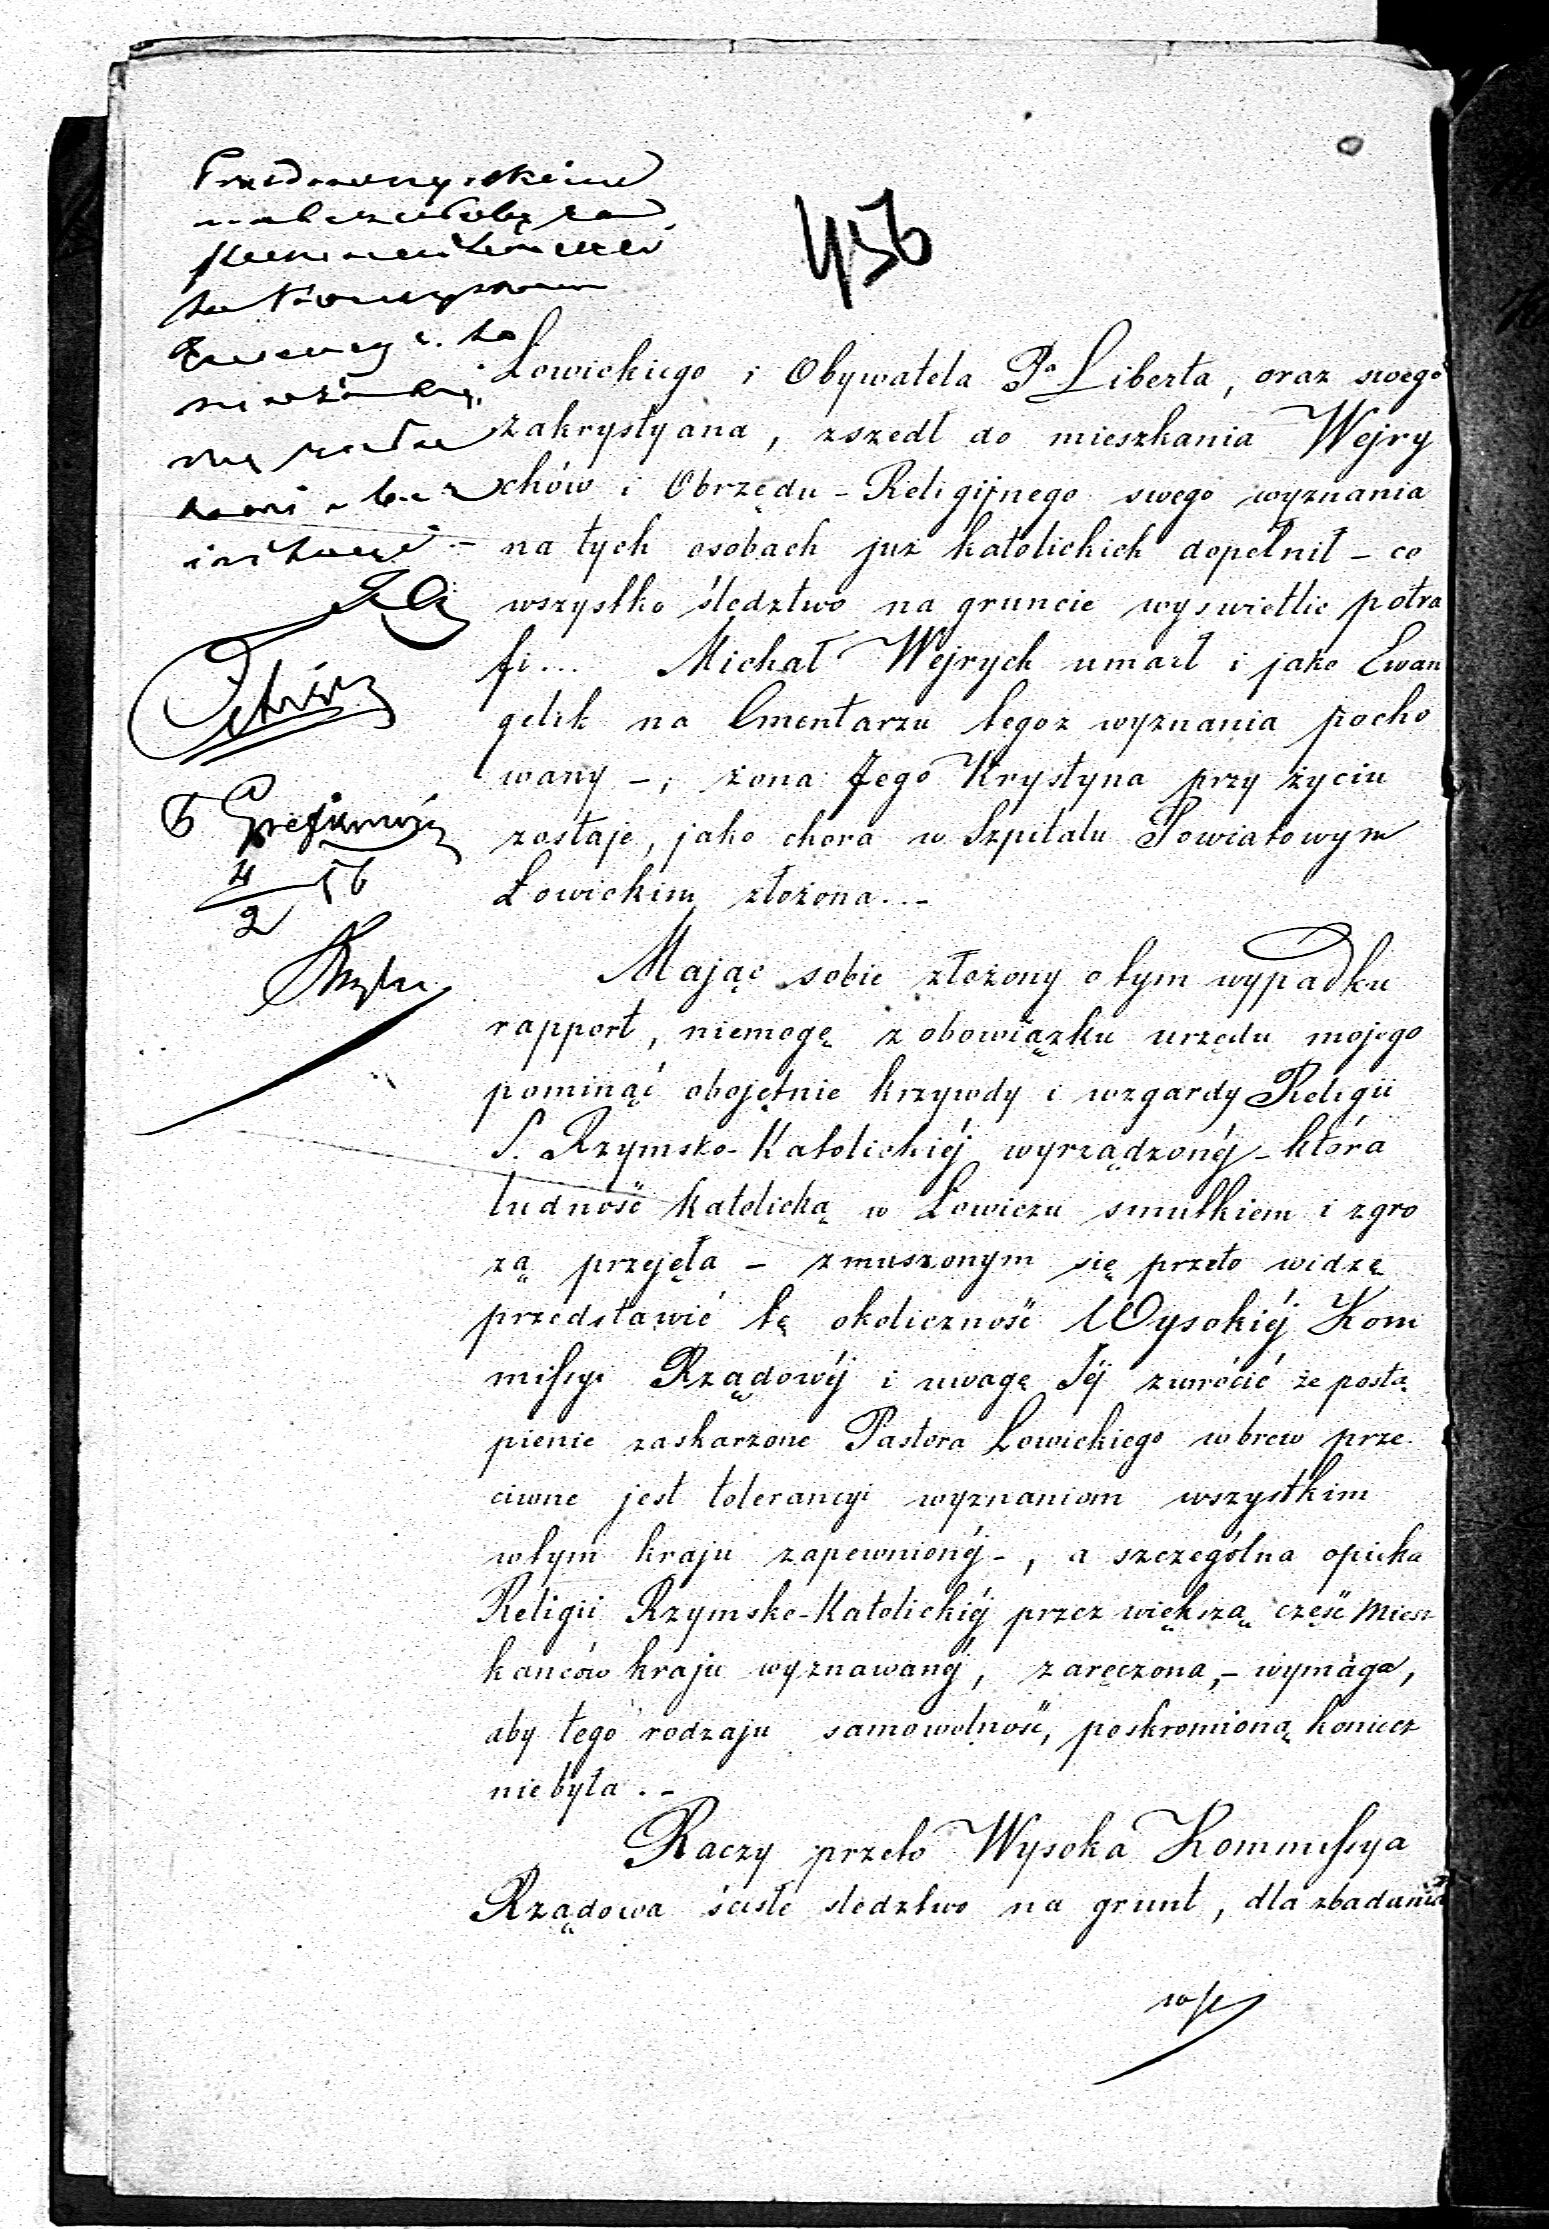 456
Łowickiego i Obywatela Pa Liberta, oraz swego
zakrystyana, zszedł do mieszkania Wejry
chów i Obrzędu-Religijnego swego wyznania
na tych osobach już katolickich dopełnił - co
wszystko śledztwo na gruncie wyswietlic potra
fi... Michał Wejrych umarł i jako Ewan
gelik na Cmentarzu tegoz wyznania pocho
wany -, żona Jego Krystyna przy życiu
zostaje, jako chora w Szpitalu Powiatowym
Łowickim złożona. -
Mając sobie złożony o tym wypadku
rapport, niemogę z obowiązku urzędu mojego
pominąć obojętnie krzywdy i wzgardy Religii
S. Rzymsko-Katolickiéj wyrządzonéj - która
ludność katolicką w Łowiczu smutkiem i zgro
zą przejęła - zmuszonym się przeto widzę
przedstawić tę okoliczność Wysokiéj Kom
missyi Rządowéj i uwagę Jéj zwrócić że postą
pienie zaskarżone Pastora Łowickiego wbrew prze
ciwne jest tolerancyi wyznaniom wszystkim
wtym kraju zapewnionéj -, a szczególna opieka
Religii Rzymsko-Katolickiéj przez większą część miesz
kańców kraju wyznawanéj, zaręczona, - wymaga,
aby tego rodzaju samowolność, poskromioną koniecz
nie była. -
Raczy przeto Wysoka Kommissya
Rządowa ścisłe sledztwo na grunt, dla zbadania
4/2 56